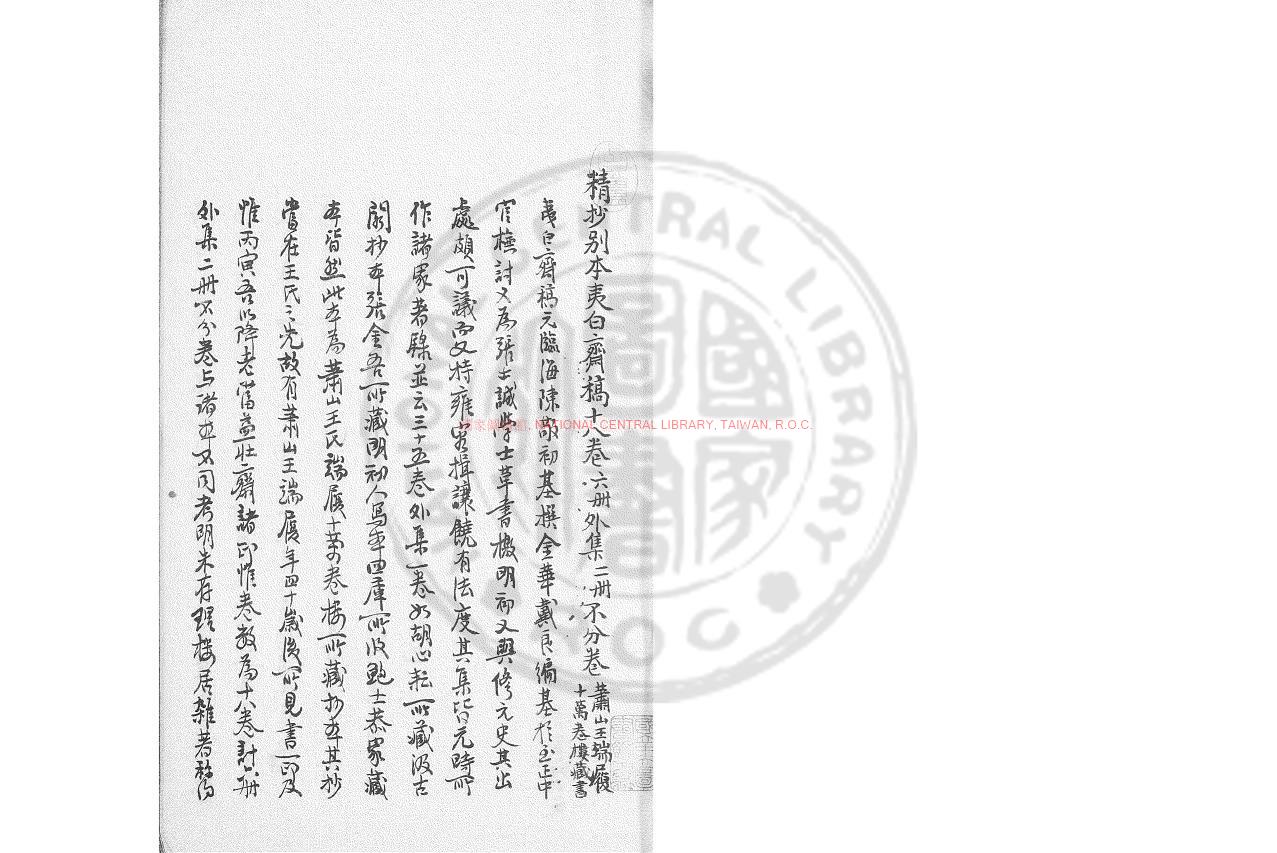 精抄別本夷白齋稿十八卷六册外集二册不分卷
蕭山王端履
十萬卷樓藏書
夷白齋稿元臨海陳敬初基撰金華戴良編基於至正中
官檢討又爲張士誠學士草書檄明初又與修元史其出
處頗可議而文特雍容揖讓饒有法度其集皆元時所
作諸家著錄並云三十五卷外集一卷如胡心耘所藏汲古
閣抄本張金吾所藏明初人寫本四庫所收鮑士恭家藏
本皆然此本爲蕭山王氏端履十萬卷樓所藏抄本其抄
當在王氏之先故有蕭山王端履年四十歲後所見書一印及
惟丙寅吾以降老當益壯齋諸印惟卷數爲十八卷計六册
外集二册不分卷与諸本不同考明朱存理樓居雜著
NATIONAL CENTRAL LIBRARY, TAIWAN, R.O.C.